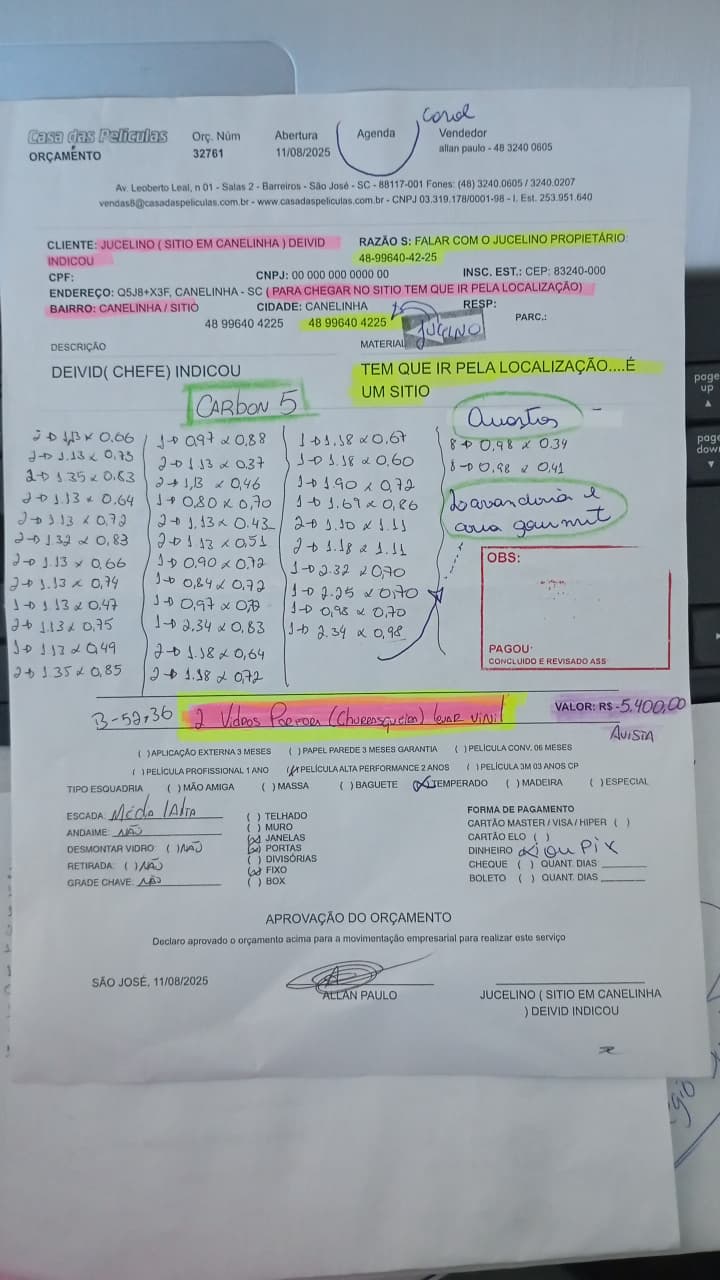 Carol
Casa das Películas
ORÇAMENTO
Orç. Núm
32761
Abertura
11/08/2025
Agenda
Vendedor
allan paulo - 48 3240 0605
Av. Leoberto Leal, n 01 - Salas 2 - Barreiros - São José - SC - 88117-001 Fones: (48) 3240.0605 / 3240.0207
vendas8@casadaspeliculas.com.br - www.casadaspeliculas.com.br - CNPJ 03.319.178/0001-98 - I. Est. 253.951.640
CLIENTE: JUCELINO ( SITIO EM CANELINHA ) DEIVID
INDICOU
RAZÃO S: FALAR COM O JUCELINO PROPIETÁRIO
48-99640-42-25
CPF:
CNPJ: 00 000 000 0000 00
INSC. EST.: CEP: 83240-000
ENDEREÇO: Q5J8+X3F, CANELINHA - SC ( PARA CHEGAR NO SITIO TEM QUE IR PELA LOCALIZAÇÃO)
BAIRRO: CANELINHA / SITIO
CIDADE: CANELINHA
RESP:
48 99640 4225
48 99640 4225
JUCELINO
PARC.:
DESCRIÇÃO
MATERIAL
DEIVID( CHEFE) INDICOU
TEM QUE IR PELA LOCALIZAÇÃO....É
UM SITIO
CARBON 5
2→ 1,13 x 0,66
2→ 1.13 x 0,73
2→ 1.35 x 0.83
2→ 1.13 x 0.64
2→ 1.13 x 0,72
2→ 1.32 x 0,83
2→ 1.13 x 0,66
2→ 1.13 x 0,74
1→ 1.13 x 0,47
2→ 1.13 x 0,75
1→ 1.13 x 0,49
2→ 1.35 x 0,85
1→ 0.97 x 0,88
2→ 1.13 x 0.37
2→ 1,13 x 0,46
1→ 0,80 x 0,70
2→ 1,13 x 0.43
2→ 1.13 x 0.51
1→ 0,90 x 0,72
1→ 0,84 x 0,72
1→ 0,97 x 0,72
1→ 2,34 x 0,83
2→ 1.18 x 0,64
2→ 1.18 x 0,72
1→ 1.18 x 0,67
1→ 1.18 x 0,60
1→ 1.90 x 0,72
1→ 1.69 x 0,86
2→ 1.10 x 1.11
2→ 1.18 x 1.11
1→ 2.32 x 0,70
1→ 2.25 x 0,70
1→ 0,98 x 0,70
1→ 2.34 x 0,98
Quartos
8→ 0,98 x 0.34
8→ 0,98 x 0,41
Lavanderia e
area gourmet
OBS:
PAGOU
CONCLUIDO E REVISADO ASS
B-52,36
2 Vidros Por fora (Churrasqueira) levar vinil
VALOR: R$ -5.400,00
AVISTA
( )APLICAÇÃO EXTERNA 3 MESES ( )PAPEL PAREDE 3 MESES GARANTIA ( )PELÍCULA CONV. 06 MESES
( )PELÍCULA PROFISSIONAL 1 ANO (x)PELÍCULA ALTA PERFORMANCE 2 ANOS ( )PELÍCULA 3M 03 ANOS CP
TIPO ESQUADRIA ( )MÃO AMIGA ( )MASSA ( )BAGUETE (x)TEMPERADO ( )MADEIRA ( )ESPECIAL
ESCADA: Média / Alta
ANDAIME: NÃO
DESMONTAR VIDRO: ( )NÃO
RETIRADA: ( )NÃO
GRADE CHAVE: NÃO
( )TELHADO
( )MURO
(x)JANELAS
(x)PORTAS
( )DIVISÓRIAS
(x)FIXO
( )BOX
FORMA DE PAGAMENTO
CARTÃO MASTER / VISA / HIPER ( )
CARTÃO ELO ( )
DINHEIRO (x) ou PIX
CHEQUE ( ) QUANT. DIAS
BOLETO ( ) QUANT. DIAS
APROVAÇÃO DO ORÇAMENTO
Declaro aprovado o orçamento acima para a movimentação empresarial para realizar este serviço
SÃO JOSÉ, 11/08/2025
ALLAN PAULO
JUCELINO ( SITIO EM CANELINHA
) DEIVID INDICOU
page up
page down